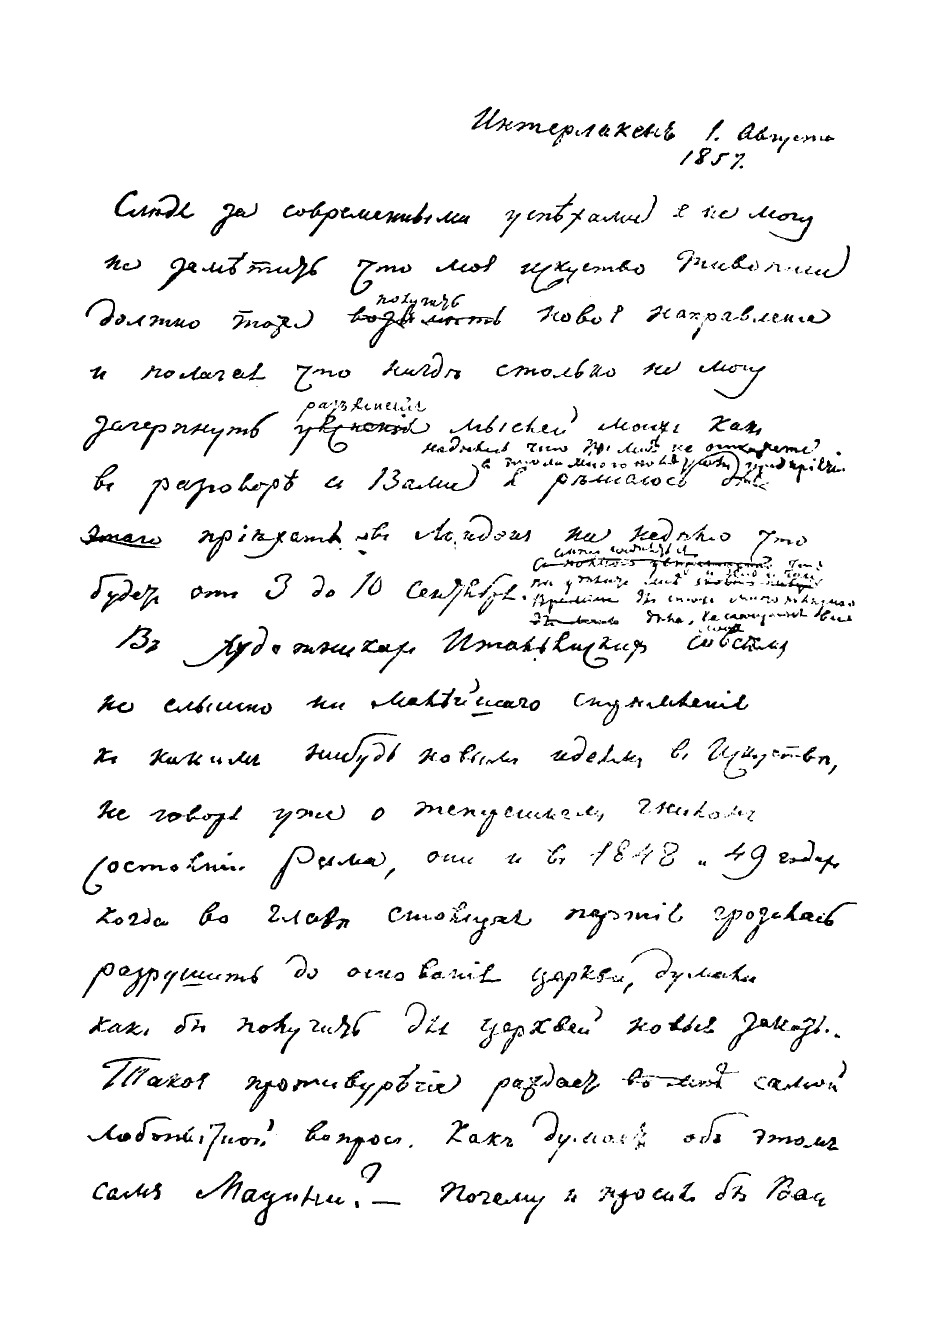 Интерлакенъ 1. Августа
1857.
Слѣдя за современными успѣхами я не могу
не замѣтить что моя искуство живописи
должно тоже
получить
новое направленіе
и полагая что нигдѣ столько не могу
разъясненія
зачерпнуть мыслей моихъ какъ
надѣюсь что Вы мнѣ не откажете
въ разговорѣ съ Вами я рѣшаюсь для
этаго пріѣхать въ Лондонъ на недѣлю что
будетъ отъ 3 до 10 Сентября.
Въ Художникахъ Итальянскихъ совсѣмъ
не слышно ни малѣйшаго стремленія
къ какимъ нибудь новымъ идеямъ въ Искуствѣ,
не говоря уже о теперешнемъ гниломъ
состояніи Рима, они и въ 1848 и 49 годахъ
когда во главѣ стоящая партія грозилась
разрушить до основанія церкви, думали
какъ бы получить для церквей новыя заказы..
Такое противурѣчіе раздаетъ во мнѣ самой
любопытной вопросъ. Какъ думаетъ объ этомъ
самъ Мацини? — Почему я просилъ бы Вас